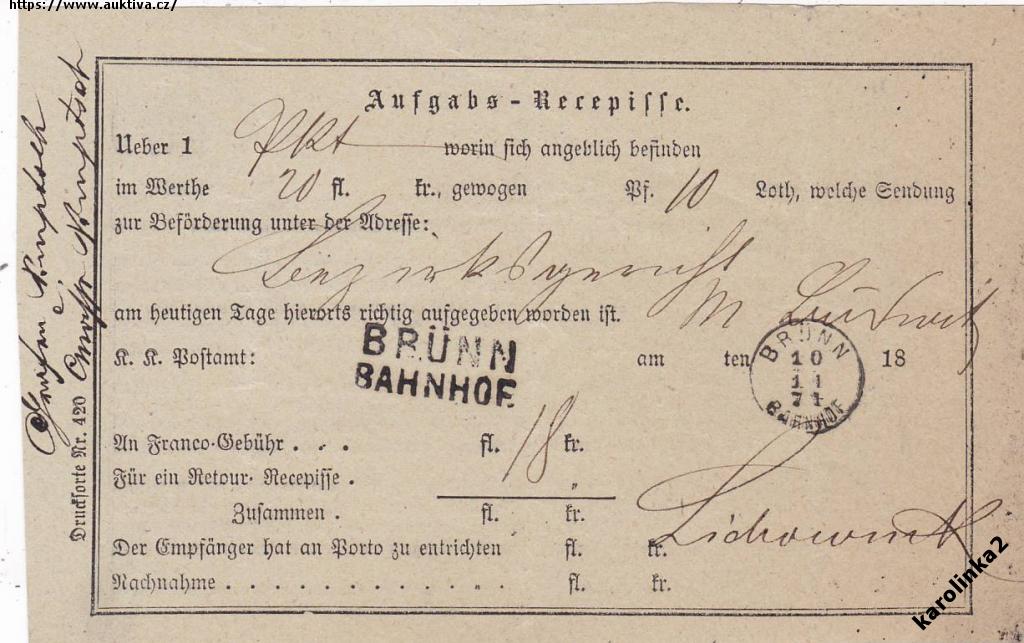 https://www.auktiva.cz/
Aufgabs-Recepisse.
Ueber 1 Pkt worin sich angeblich befinden
im Werthe 20 fl. kr., gewogen Pf. 10 Loth, welche Sendung
zur Beförderung unter der Adresse:
Bezirksgericht
am heutigen Tage hierorts richtig aufgegeben worden ist.
K. K. Postamt: am ten 18
BRÜNN
BAHNHOF
BRÜNN
10
11
71
BAHNHOF
An Franco-Gebühr . . . fl. 18 kr.
Für ein Retour-Recepisse . "
Zusammen . fl. kr.
Der Empfänger hat an Porto zu entrichten fl. kr.
Nachnahme . . . . . . . . . . . fl. kr.
Drucksorte Nr. 420
karolinka2